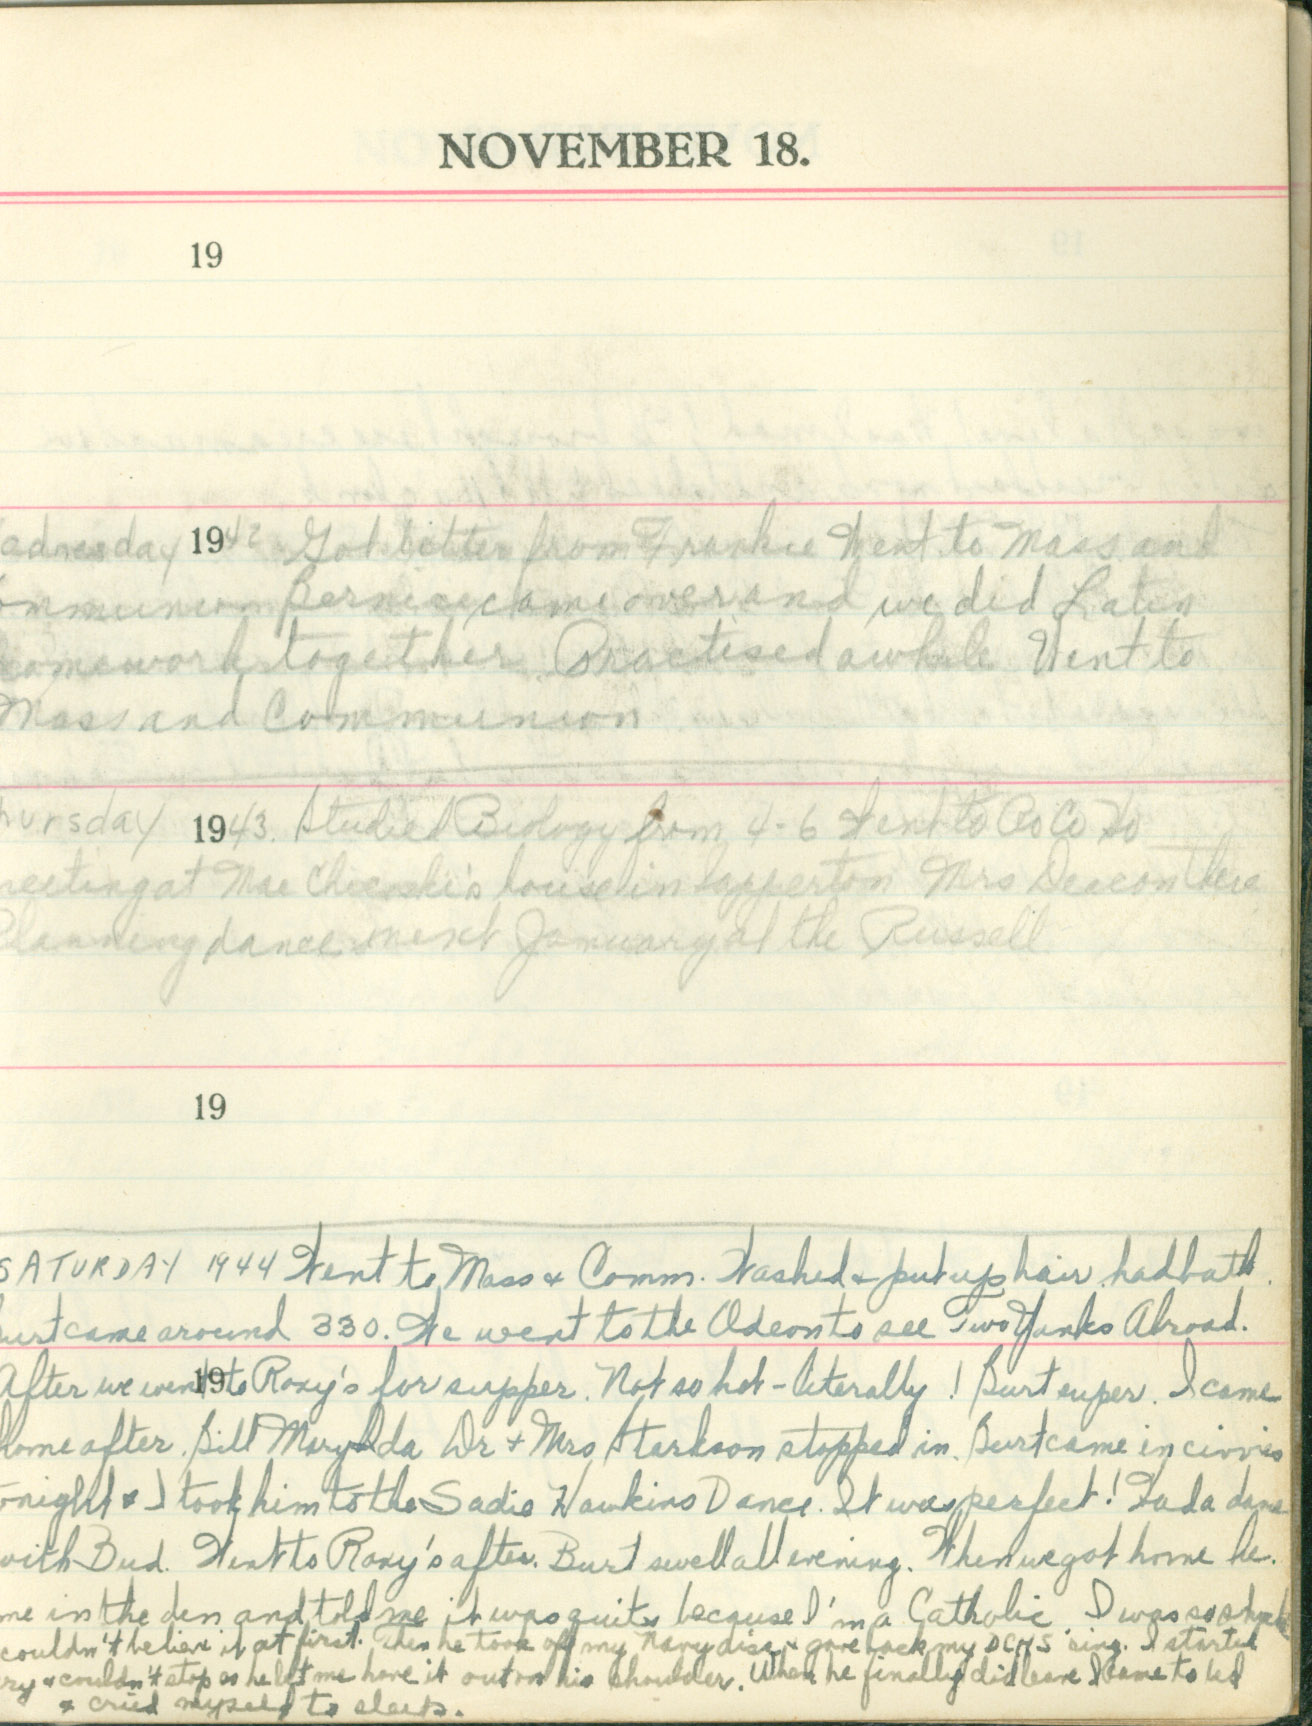 NOVEMBER 18.
19
adnesday 1942 Got letter from Frankie Went to Mass and
ommunion Bernice came over and we did Latin
homework together. Practised awhile Went to
Mass and Communion
hursday 1943. Studied Biology from 4-6 Went to Co
meeting at Mae house in Mrs Deacon there
Planning dance next January at the Russell
19
SATURDAY 1944 Went to Mass & Comm. Washed & put up hair, had bath.
Burt came around 330. We went to the Odeon to see Two Yanks Abroad.
19
After we went to Roxy's for supper. Not so hot - literally! Burt super. I came
home after. Bill Mary & Ida Dr & Mrs stopped in. Burt came in civvies
tonight & I took him to the Sadie Hawkins Dance. It was perfect! Had a dance
with Bud. Went to Roxy's after. Burt swell all evening. When we got home he
me in the den and told me it was quits because I'm a Catholic I was so
couldn't believe it at first. Then he took off my Navy disc & gave back my DCHS ring. I started
ry & couldn't stop so he let me have it out on his shoulder. When he finally did leave I came to bed
& cried myself to sleep.